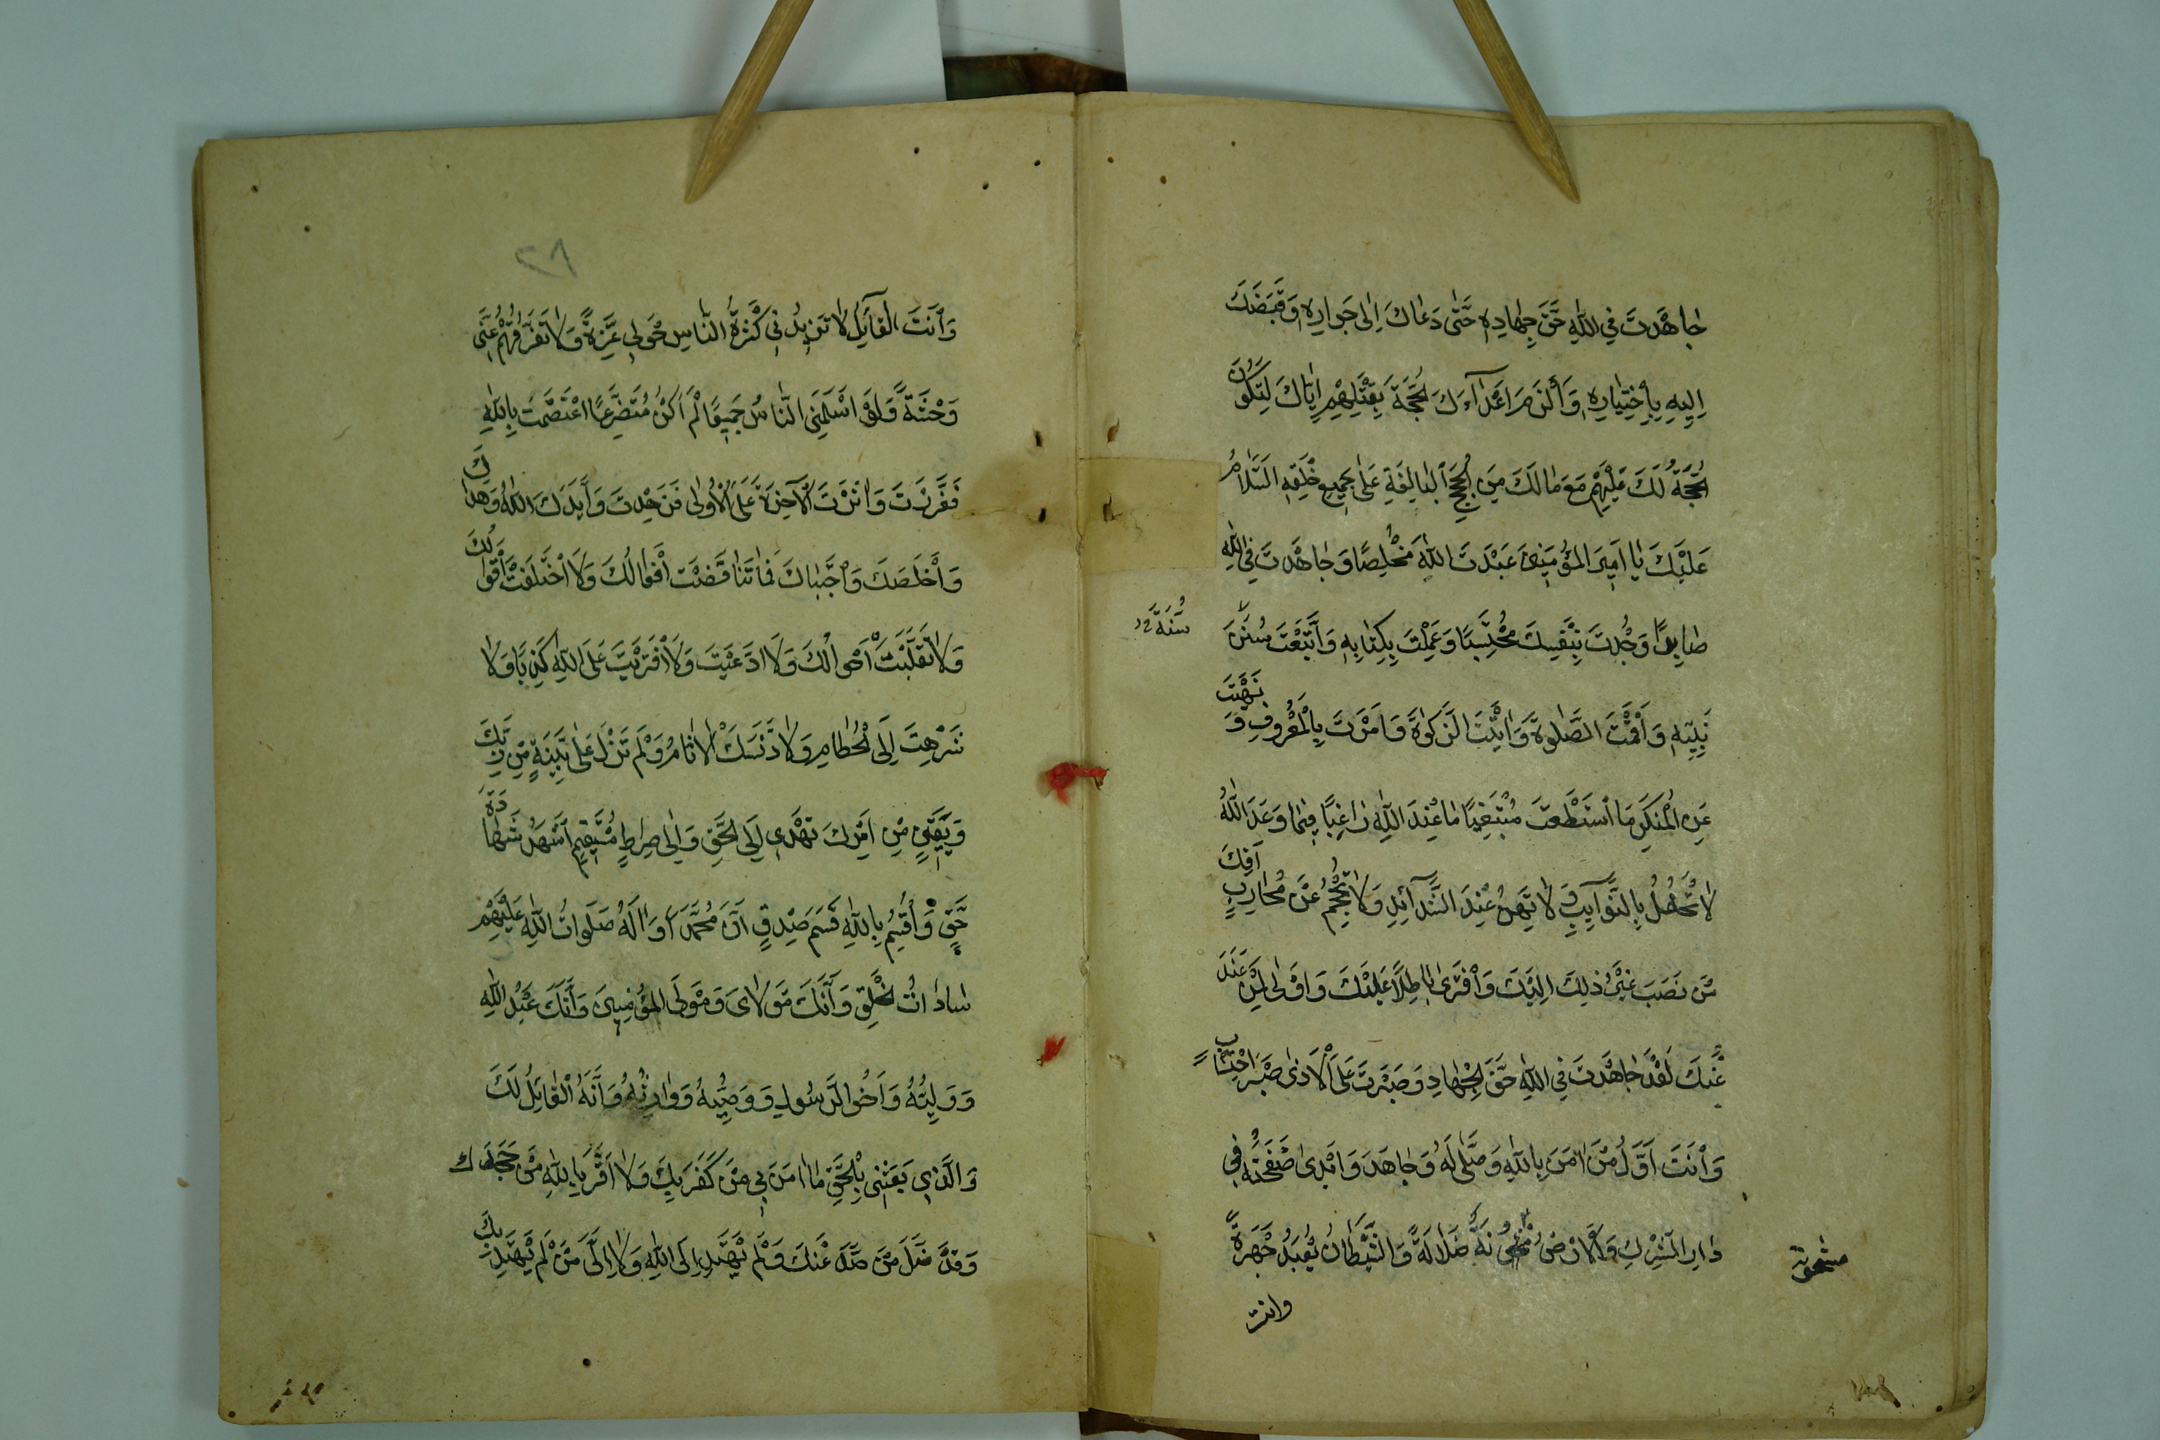 جٰاهَدْتَ فِي اللّٰهِ حَقَّ جِهٰادِهِ حَتّٰى دَعٰاكَ اِلٰى جَوٰارِهِ وَقَبَضَكَ
اِلَيْهِ بِاخْتِيٰارِهِ وَاَلْزَمَ اَعْدٰآءَكَ الْحُجَّةَ بِقَتْلِهِمْ اِيّٰاكَ لِتَكُونَ
الْحُجَّةُ لَكَ عَلَيْهِمْ مَعَ مٰا لَكَ مِنَ الْحُجَجِ الْبٰالِغَةِ عَلٰى جَمِيعِ خَلْقِهِ اَلسَّلٰامُ
عَلَيْكَ يٰا اَمِيرَ الْمُؤْمِنِينَ عَبَدْتَ اللّٰهَ مُخْلِصًا وَجٰاهَدْتَ فِي اللّٰهِ
صٰابِرًا وَجُدْتَ بِنَفْسِكَ مُحْتَسِبًا وَعَمِلْتَ بِكِتٰابِهِ وَاتَّبَعْتَ سُنَنَ
سُنَّةَ
نَبِيِّهِ وَاَقَمْتَ الصَّلٰوةَ وَاٰتَيْتَ الزَّكٰوةَ وَاَمَرْتَ بِالْمَعْرُوفِ وَنَهَيْتَ
عَنِ الْمُنْكَرِ مَا اسْتَطَعْتَ مُبْتَغِيًا مٰا عِنْدَ اللّٰهِ رٰاغِبًا فِيمٰا وَعَدَ اللّٰهُ
لٰا تَحْفُلُ بِالنَّوٰآئِبِ وَلٰا تَهِنُ عِنْدَ الشَّدٰآئِدِ وَلٰا تُحْجِمُ عَنْ مُحٰارِبٍ اَفِكَ
مَنْ نَسَبَ غَيْرَ ذٰلِكَ اِلَيْكَ وَافْتَرٰى بٰاطِلًا عَلَيْكَ وَاَوْلٰى لِمَنْ عَنَدَ
عَنْكَ لَقَدْ جٰاهَدْتَ فِي اللّٰهِ حَقَّ الْجِهٰادِ وَصَبَرْتَ عَلَى الْاَذٰى صَبْرَ احْتِسٰابٍ
وَاَنْتَ اَوَّلُ مَنْ اٰمَنَ بِاللّٰهِ وَصَلّٰى لَهُ وَجٰاهَدَ وَاَبْدٰى صَفْحَتَهُ فِي
دٰارِ الشِّرْكِ وَالْاَرْضُ مَشْحُونَةٌ ضَلٰالَةً وَالشَّيْطٰانُ يُعْبَدُ جَهْرَةً
مشحونة
وانت
وَاَنْتَ الْقٰآئِلُ لٰا تَزِيدُنِي كَثْرَةُ النّٰاسِ حَوْلِي عِزَّةً وَلٰا تَفَرُّقُهُمْ عَنِّي
وَحْشَةً وَلَوْ اَسْلَمَنِي النّٰاسُ جَمِيعًا لَمْ اَكُنْ مُتَضَرِّعًا اعْتَصَمْتَ بِاللّٰهِ
فَعَزَزْتَ وَاٰثَرْتَ الْاٰخِرَةَ عَلَى الْاُولٰى فَزَهِدْتَ وَاَيَّدَكَ اللّٰهُ وَهَدٰاكَ
وَاَخْلَصَكَ وَاجْتَبٰاكَ فَمٰا تَنٰاقَضَتْ اَفْعٰالُكَ وَلَا اخْتَلَفَتْ اَقْوٰالُكَ
وَلٰا تَقَلَّبَتْ اَحْوٰالُكَ وَلَا ادَّعَيْتَ وَلَا افْتَرَيْتَ عَلَى اللّٰهِ كَذِبًا وَلٰا
شَرِهْتَ اِلَى الْحُطٰامِ وَلٰا دَنَّسَكَ الْاٰثٰامُ وَلَمْ تَزَلْ عَلٰى بَيِّنَةٍ مِنْ رَبِّكَ
وَيَقِينٍ مِنْ اَمْرِكَ تَهْدِي اِلَى الْحَقِّ وَاِلٰى صِرٰاطٍ مُسْتَقِيمٍ اَشْهَدُ شَهٰادَةَ
حَقٍّ وَاُقْسِمُ بِاللّٰهِ قَسَمَ صِدْقٍ اَنَّ مُحَمَّدًا وَاٰلَهُ صَلَوٰاتُ اللّٰهِ عَلَيْهِمْ
سٰادٰاتُ الْخَلْقِ وَاَنَّكَ مَوْلٰاىَ وَمَوْلَى الْمُؤْمِنِينَ وَاَنَّكَ عَبْدُ اللّٰهِ
وَوَلِيُّهُ وَاَخُو الرَّسُولِ وَوَصِيُّهُ وَوٰارِثُهُ وَاَنَّهُ الْقٰآئِلُ لَكَ
وَالَّذِي بَعَثَنِي بِالْحَقِّ مٰا اٰمَنَ بِي مَنْ كَفَرَ بِكَ وَلٰا اَقَرَّ بِاللّٰهِ مَنْ جَحَدَكَ
وَقَدْ ضَلَّ مَنْ صَدَّ عَنْكَ وَلَمْ يَهْتَدِ اِلَى اللّٰهِ وَلٰا اِلَىَّ مَنْ لَمْ يَهْتَدِ بِكَ